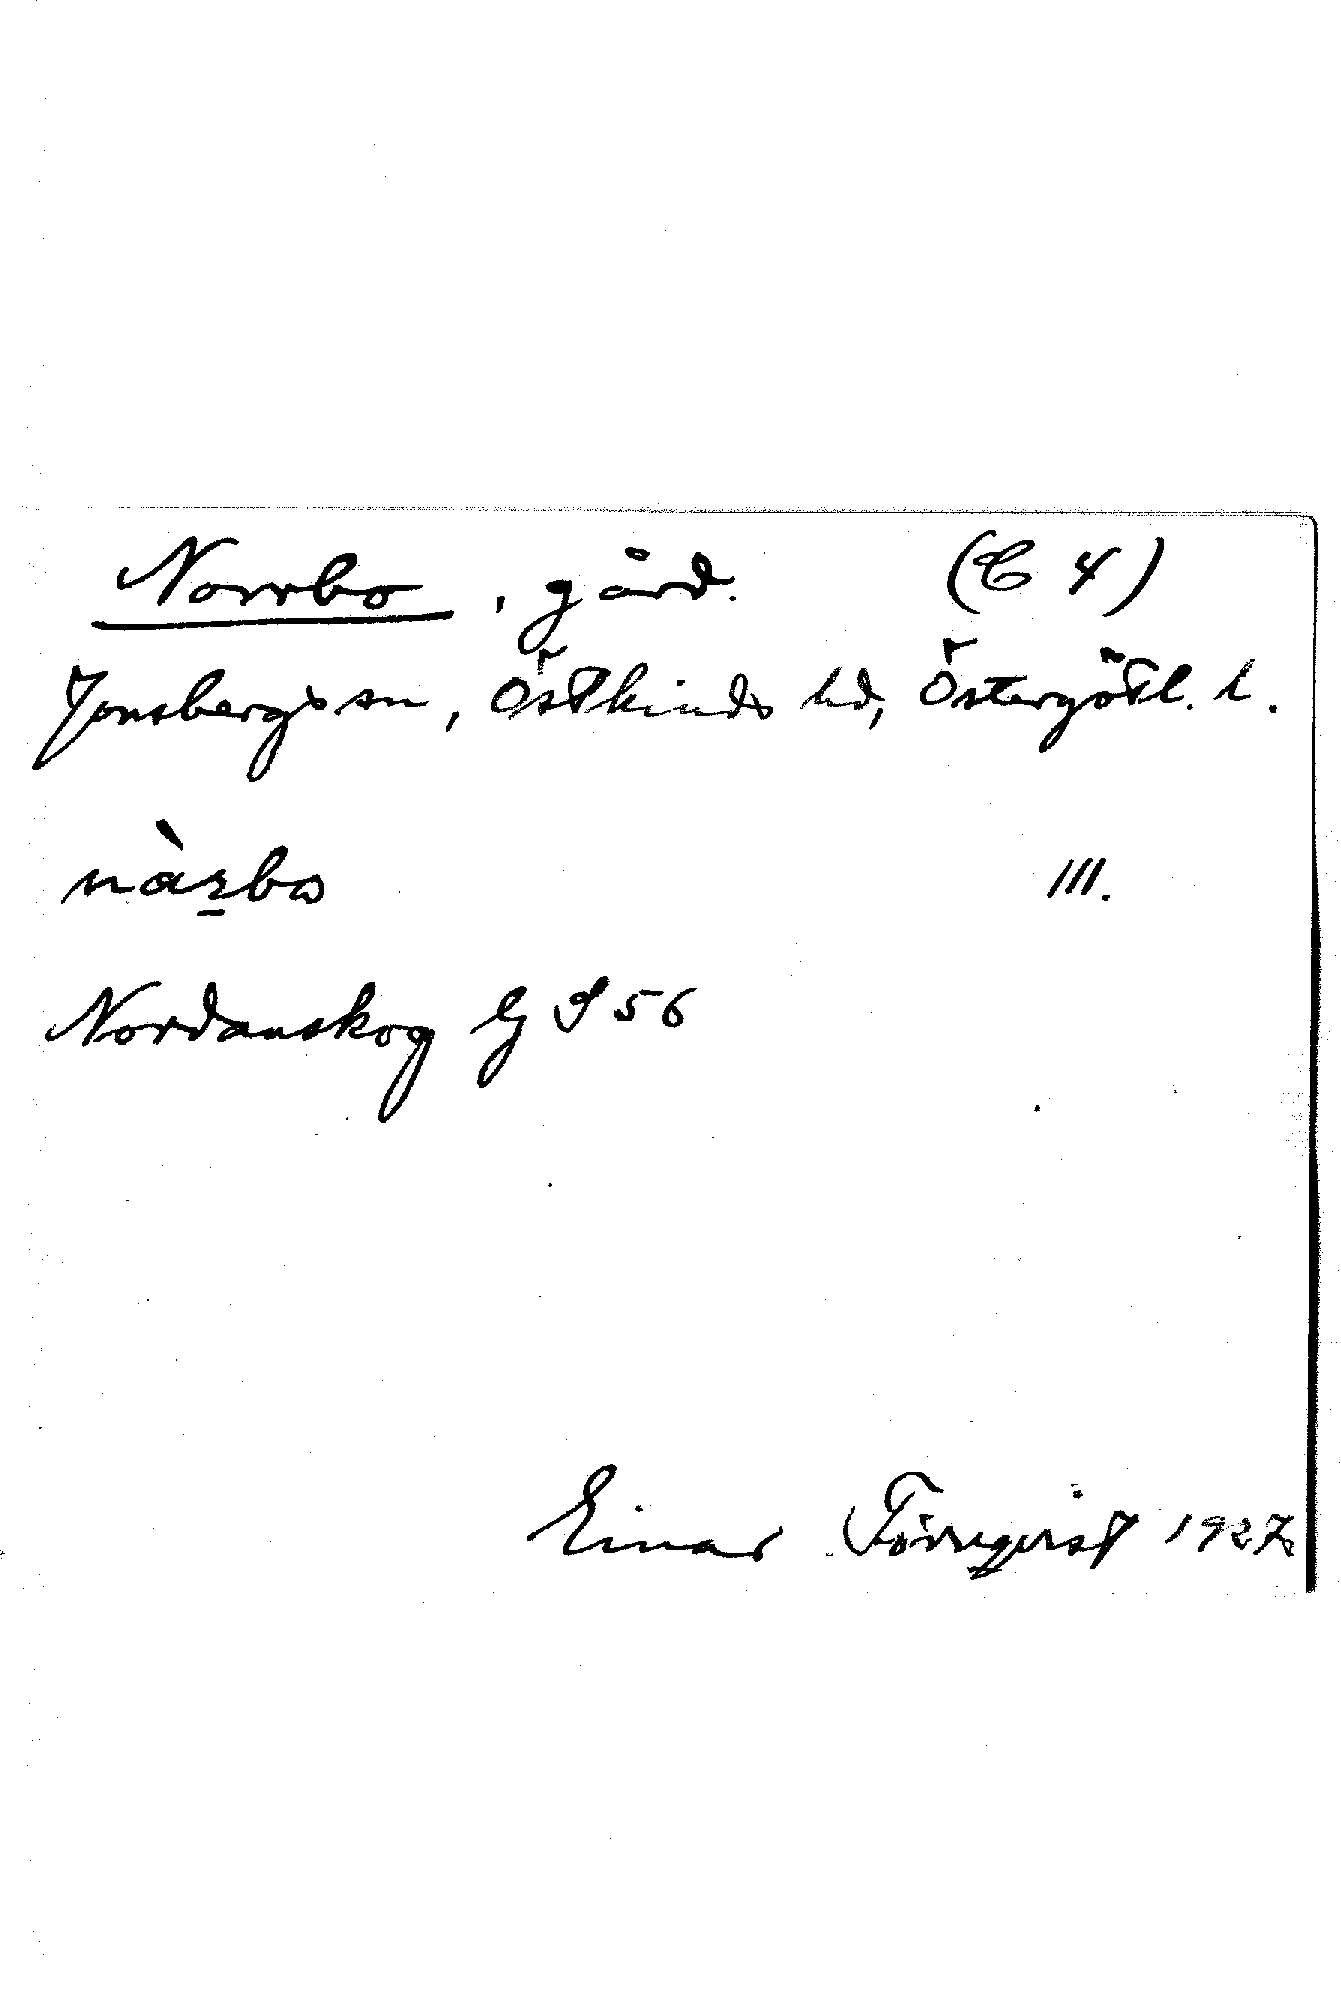 Norrbo, gård. (C 4)
Jonsbergs sn, Östkinds hd, Östergötl. l.
nàrbo III.
Nordanskog G S 56
Einar Törnqvist 1927